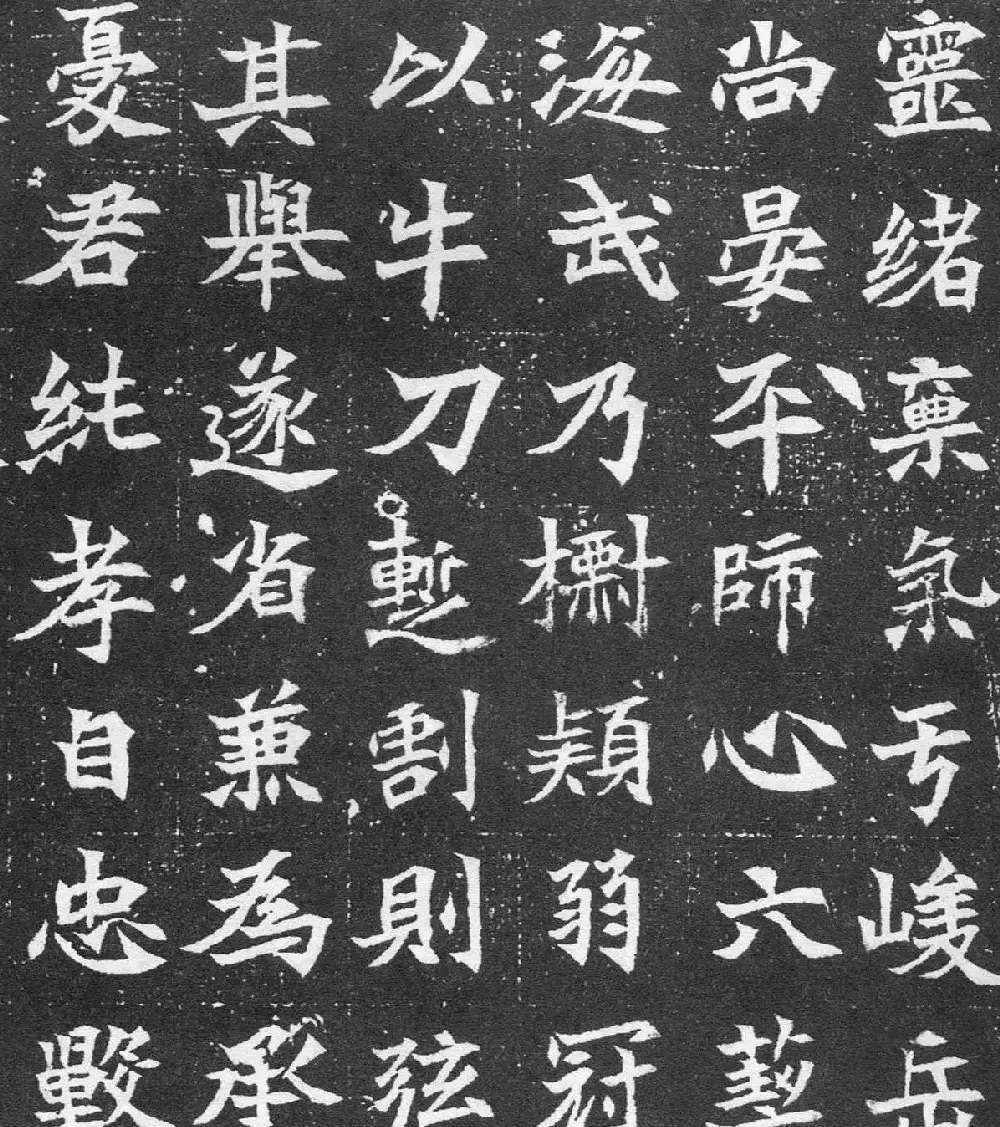 靈緒稟氣亐峻岳
尚晏平師心六藝
海武乃穎弱冠
以牛刀蹔割則弦
其舉遂省兼為承
憂君純孝自忠